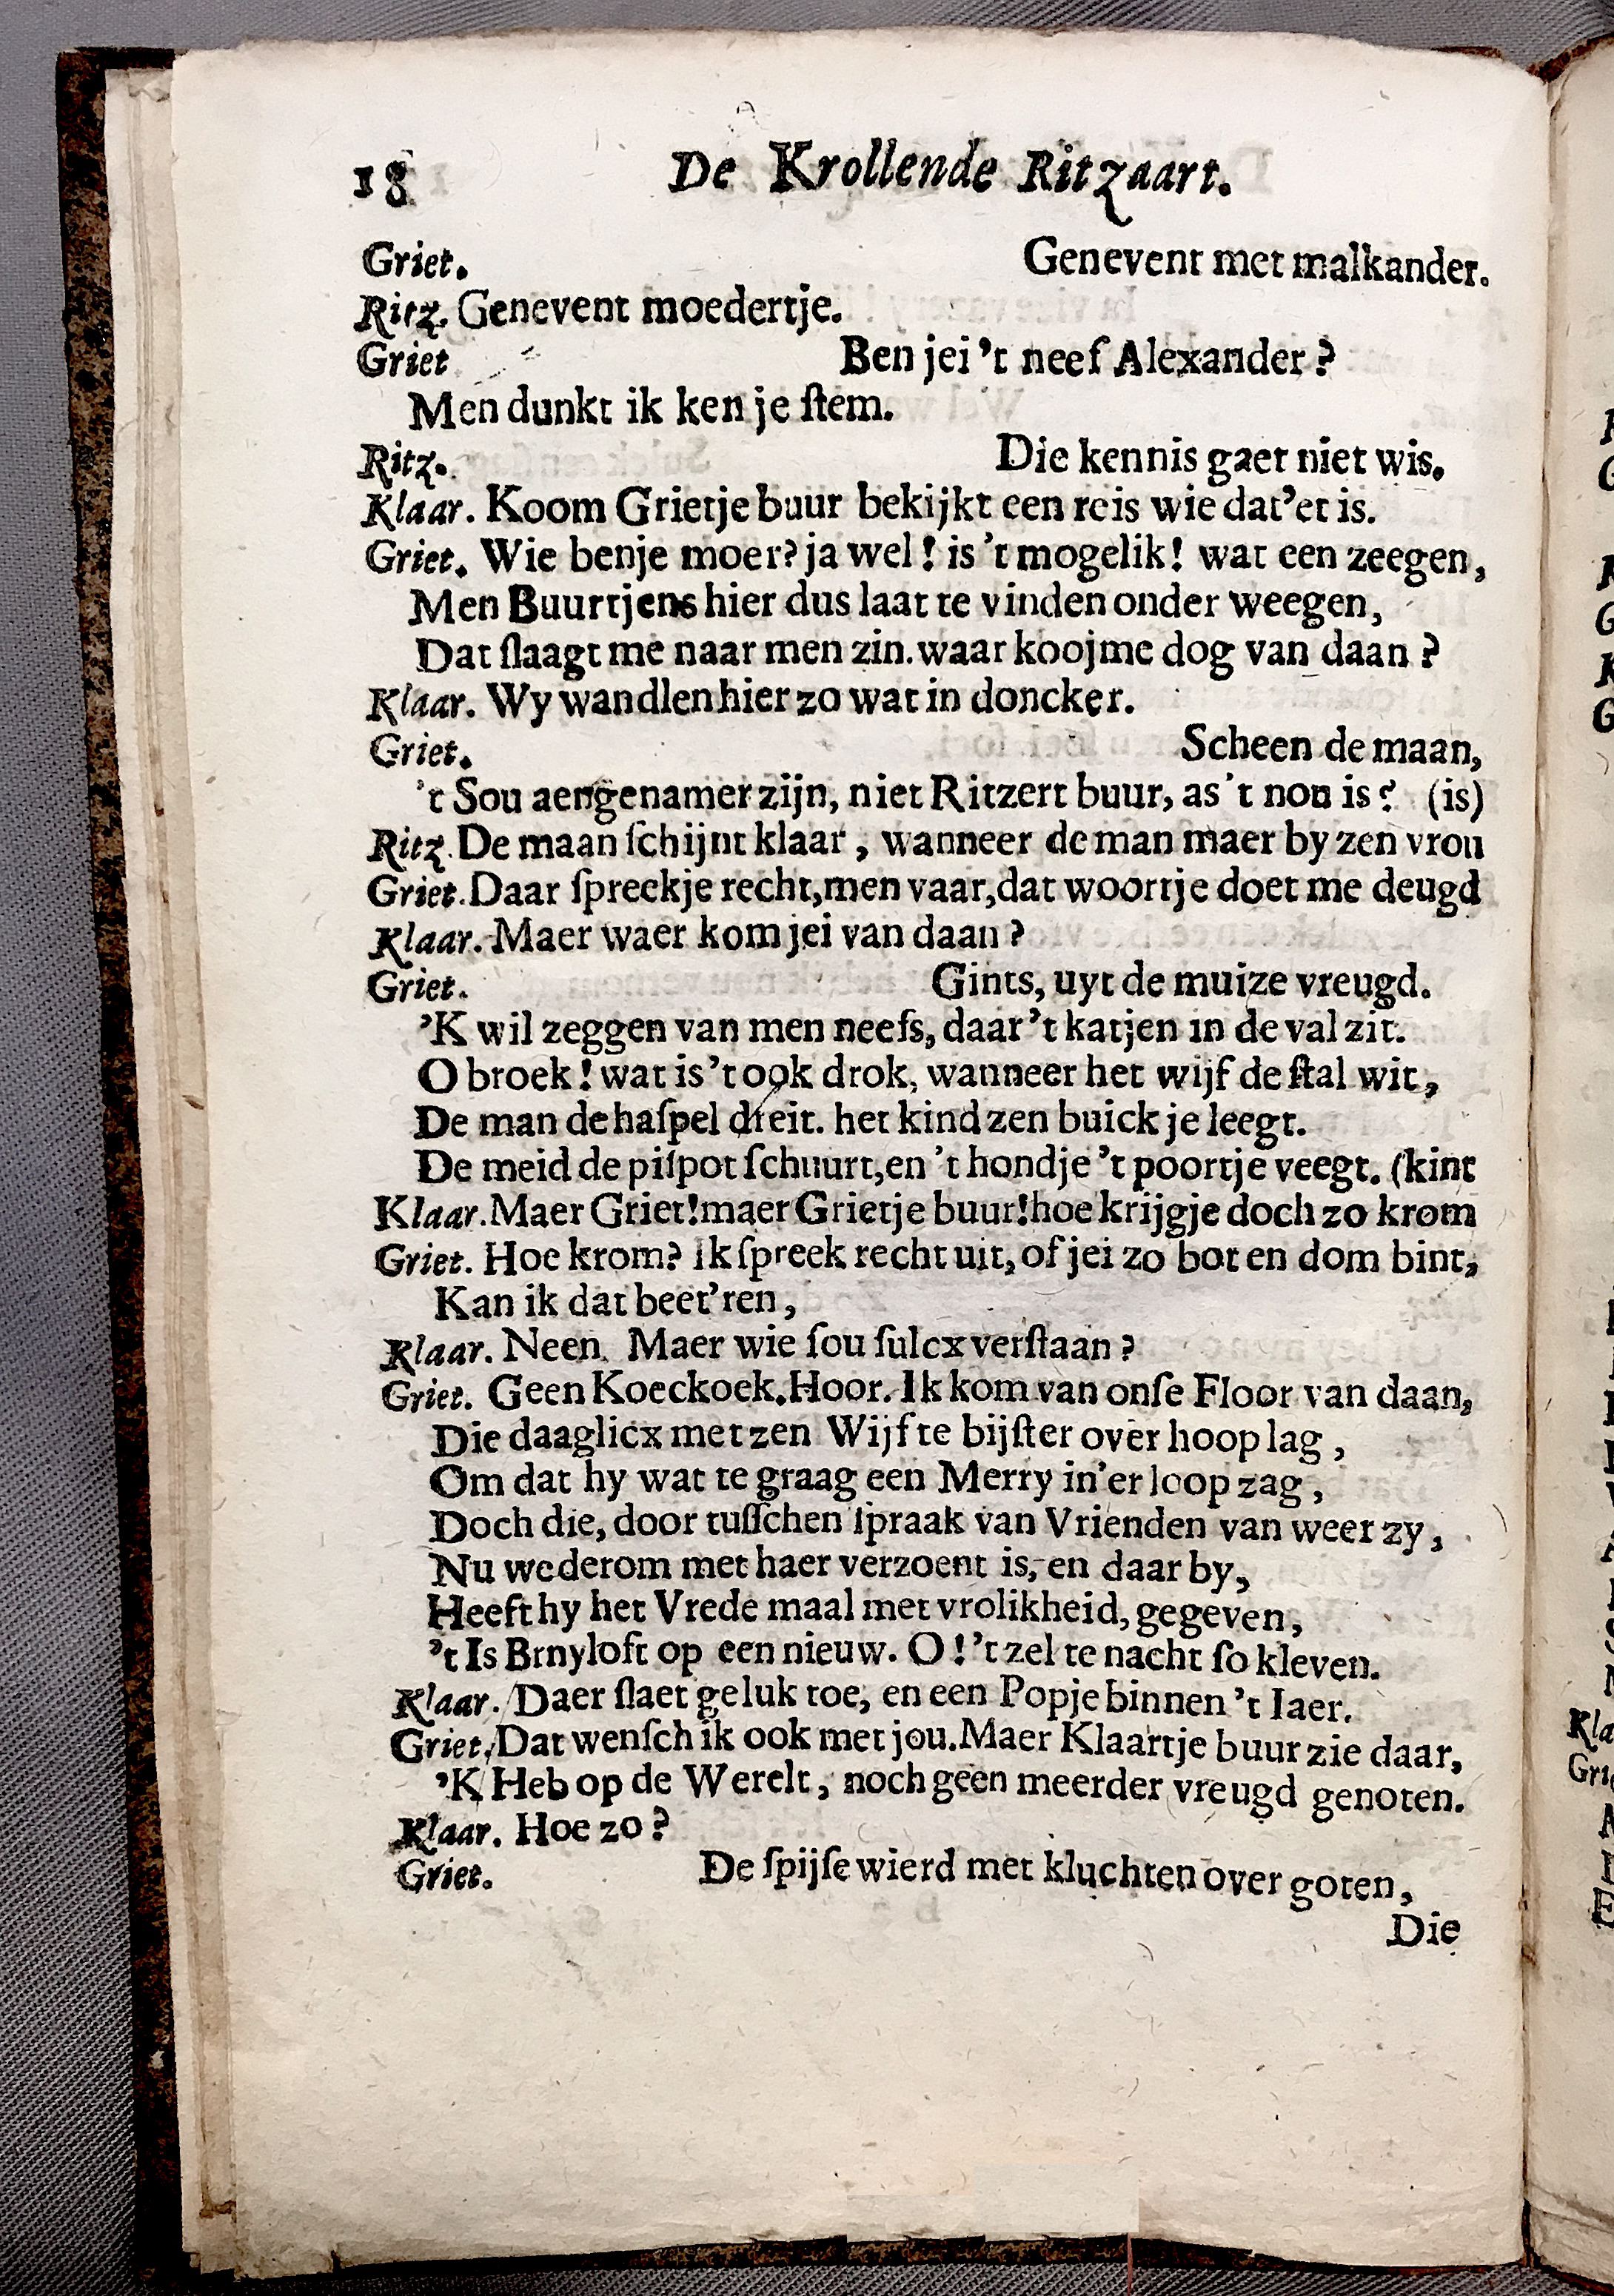 18 De Krollende Ritzaart.
Griet. Genevent met malkander.
Ritz. Genevent moedertje.
Griet Ben jei 't neef Alexander?
Men dunkt ik ken je ſtem.
Ritz. Die kennis gaet niet wis.
Klaar. Koom Grietje buur bekijkt een reis wie dat'et is.
Griet. Wie benje moer? ja wel! is 't mogelik! wat een zeegen,
Men Buurtjens hier dus laat te vinden onder weegen,
Dat ſlaagt me naar men zin. waar koojme dog van daan?
Klaar. Wy wandlen hier zo wat in doncker.
Griet. Scheen de maan,
't Sou aengenamer zijn, niet Ritzert buur, as 't nou is? (is)
Ritz. De maan ſchijnt klaar, wanneer de man maer by zen vrou
Griet. Daar ſpreekje recht, men vaar, dat woortje doet me deugd
Klaar. Maer waer kom jei van daan?
Griet. Gints, uyt de muize vreugd.
'K wil zeggen van men neefs, daar 't katjen in de val zit.
O broek! wat is 't ook drok, wanneer het wijf de ſtal wit,
De man de haſpel dreit. het kind zen buickje leegt.
De meid de piſpot ſchuurt, en 't hondje 't poortje veegt. (kint
Klaar. Maer Griet! maer Grietje buur! hoe krijgje doch zo krom
Griet. Hoe krom? Ik ſpreek recht uit, of jei zo bot en dom bint,
Kan ik dat beet'ren,
Klaar. Neen. Maer wie ſou ſulcx verſtaan?
Griet. Geen Koeckoek. Hoor. Ik kom van onſe Floor van daan,
Die daaglicx met zen Wijf te bijſter over hoop lag,
Om dat hy wat te graag een Merry in'er loop zag,
Doch die, door tuſſchen ſpraak van Vrienden van weer zy,
Nu wederom met haer verzoent is, en daar by,
Heeft hy het Vrede maal met vrolikheid, gegeven,
't Is Brnyloft op een nieuw. O! 't zel te nacht ſo kleven.
Klaar. Daer ſlaet geluk toe, en een Popje binnen 't Iaer.
Griet. Dat wenſch ik ook met jou. Maer Klaartje buur zie daar,
'K Heb op de Werelt, noch geen meerder vreugd genoten.
Klaar. Hoe zo?
Griet. De ſpijſe wierd met kluchten over goten,
Die